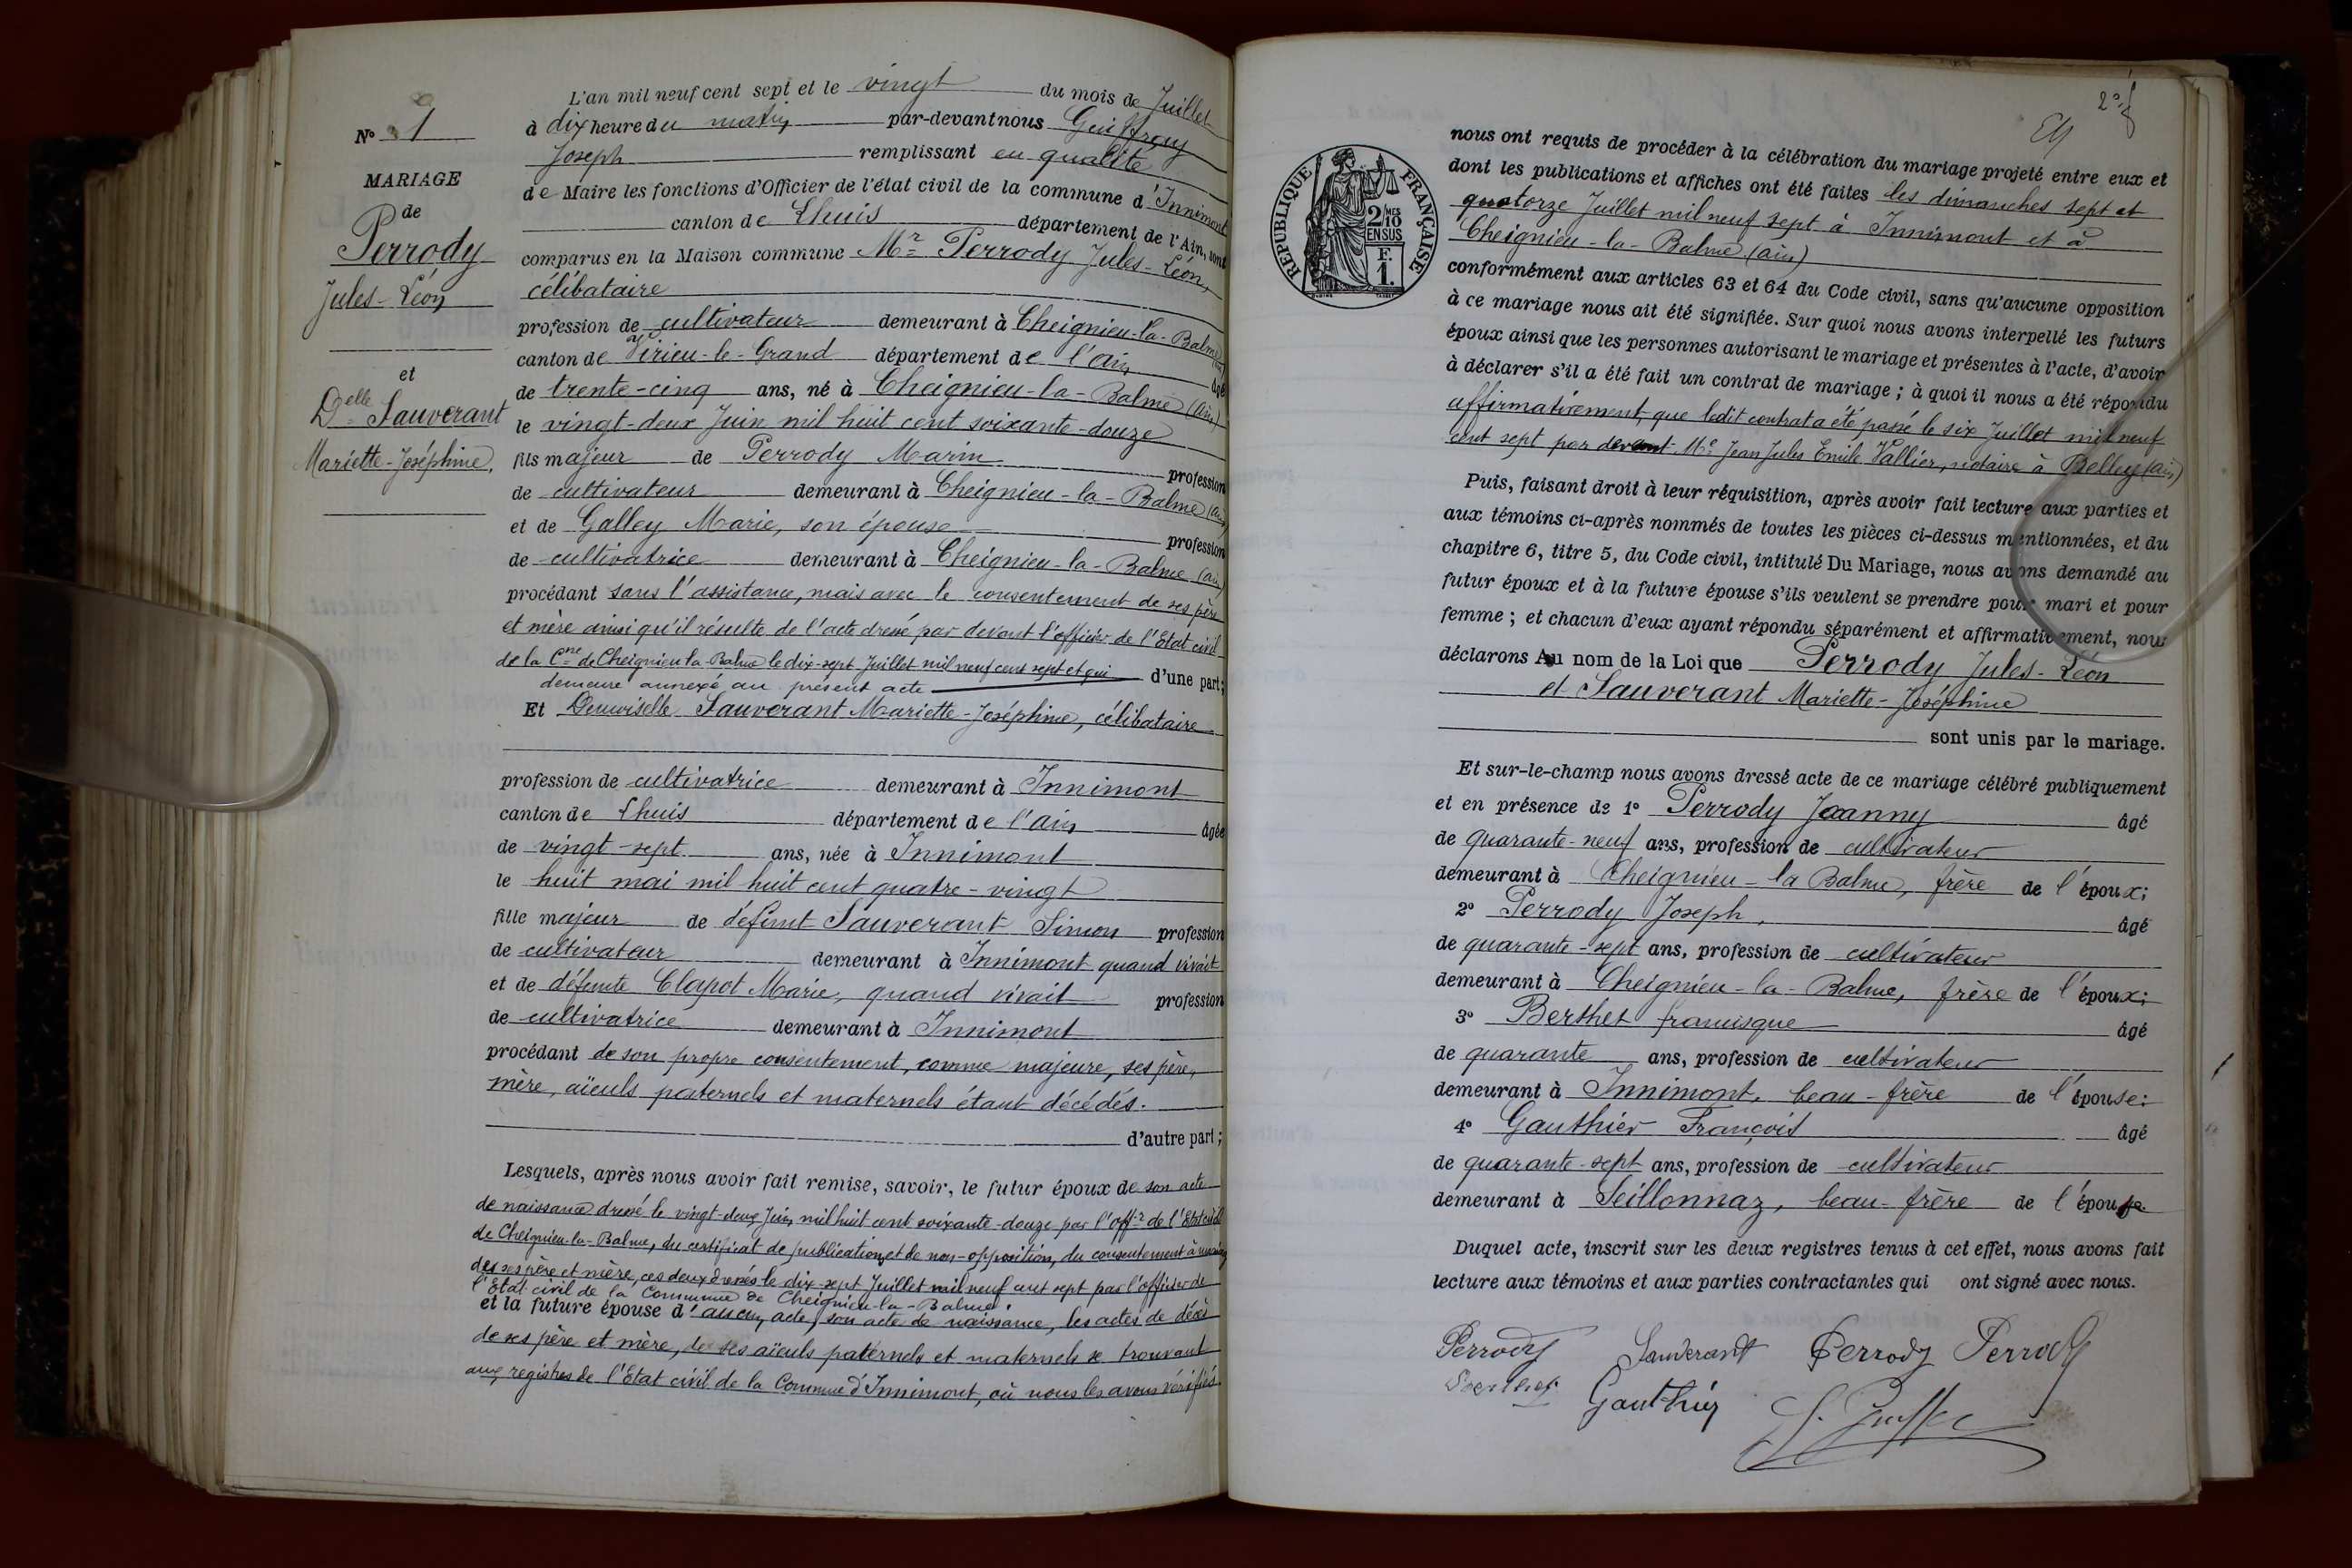 N° 1
MARIAGE
de
Perrody
Jules-Léon
et
Delle Sauverant
Mariette-Joséphine.
L'an mil neuf cent sept et le vingt du mois de Juillet
à dix heure du matin par-devant nous
Joseph remplissant en qualité
de Maire les fonctions d'Officier de l'état civil de la commune d'Innimont
canton de Lhuis département de l'Ain, sont
comparus en la Maison commune Mr Perrody Jules-Léon,
célibataire
profession de cultivateur demeurant à Cheignieu-la-Balme (ain)
canton de Virieu-le-Grand département de l'ain âgé
de trente-cinq ans, né à Cheignieu-la-Balme (ain)
le vingt-deux Juin mil huit cent soixante-douze
fils majeur de Perrody Marin profession
de cultivateur demeurant à Cheignieu-la-Balme (ain)
et de Galley Marie, son épouse profession
de cultivatrice demeurant à Cheignieu-la-Balme (ain)
procédant sans l'assistance, mais avec le consentement de ses père
et mère ainsi qu'il résulte de l'acte dressé par devant l'officier de l'Etat civil
de la Cne de Cheignieu la Balme le dix-sept Juillet mil neuf cent sept et qui d'une part;
demeure annexé au présent acte
Et Demoiselle Sauverant Mariette-Joséphine, célibataire
profession de cultivatrice demeurant à Innimont
canton de Lhuis département de l'ain âgée
de vingt-sept ans, née à Innimont
le huit mai mil huit cent quatre-vingt
fille majeur de défunt Sauverant Simon profession
de cultivateur demeurant à Innimont quand vivait
et de défunte Clapot Marie, quand vivait profession
de cultivatrice demeurant à Innimont
procédant de son propre consentement, comme majeure, ses père,
mère, aïeuls paternels et maternels étant décédés.
d'autre part;
Lesquels, après nous avoir fait remise, savoir, le futur époux de son acte
de naissance dressé le vingt-deux Juin mil huit cent soixante-douze par l'offr de l'Etat civil
de Cheignieu-la-Balme, du certificat de publication et de non-opposition, du consentement à mariage
de ses père et mère, ces deux dressés le dix-sept Juillet mil neuf cent sept par l'officier de
l'Etat civil de la Commune de Cheignieu-la-Balme.
et la future épouse d'aucun acte, son acte de naissance, les actes de décès
de ses père et mère, de ses aïeuls paternels et maternels se trouvant
aux registres de l'Etat civil de la Commune d'Innimont, où nous les avons vérifiés.
RÉPUBLIQUE FRANÇAISE
2 MES
10
EN SUS
F.
1.
nous ont requis de procéder à la célébration du mariage projeté entre eux et
dont les publications et affiches ont été faites les dimanches sept et
quatorze Juillet mil neuf sept à Innimont et à
Cheignieu-la-Balme (ain)
conformément aux articles 63 et 64 du Code civil, sans qu'aucune opposition
à ce mariage nous ait été signifiée. Sur quoi nous avons interpellé les futurs
époux ainsi que les personnes autorisant le mariage et présentes à l'acte, d'avoir
à déclarer s'il a été fait un contrat de mariage; à quoi il nous a été répondu
affirmativement, que ledit contrat a été passé le six Juillet mil neuf
cent sept par devant Me Jean Jules Emile Vallier, notaire à Belley (ain)
Puis, faisant droit à leur réquisition, après avoir fait lecture aux parties et
aux témoins ci-après nommés de toutes les pièces ci-dessus mentionnées, et du
chapitre 6, titre 5, du Code civil, intitulé Du Mariage, nous avons demandé au
futur époux et à la future épouse s'ils veulent se prendre pour mari et pour
femme; et chacun d'eux ayant répondu séparément et affirmativement, nous
déclarons Au nom de la Loi que Perrody Jules-Léon
et Sauverant Mariette-Joséphine
sont unis par le mariage.
Et sur-le-champ nous avons dressé acte de ce mariage célébré publiquement
et en présence de 1° Perrody Joanny âgé
de quarante-neuf ans, profession de cultivateur
demeurant à Cheignieu-la Balme, frère de l'époux;
2° Perrody Joseph, âgé
de quarante-sept ans, profession de cultivateur
demeurant à Cheignieu-la-Balme, frère de l'époux;
3° Berthet francisque âgé
de quarante ans, profession de cultivateur
demeurant à Innimont, beau-frère de l'épouse;
4° Gauthier François âgé
de quarante-sept ans, profession de cultivateur
demeurant à Seillonnaz, beau-frère de l'épouse.
Duquel acte, inscrit sur les deux registres tenus à cet effet, nous avons fait
lecture aux témoins et aux parties contractantes qui ont signé avec nous.
Perrody Sauverant Perrody Perrody
Berthet Gauthier